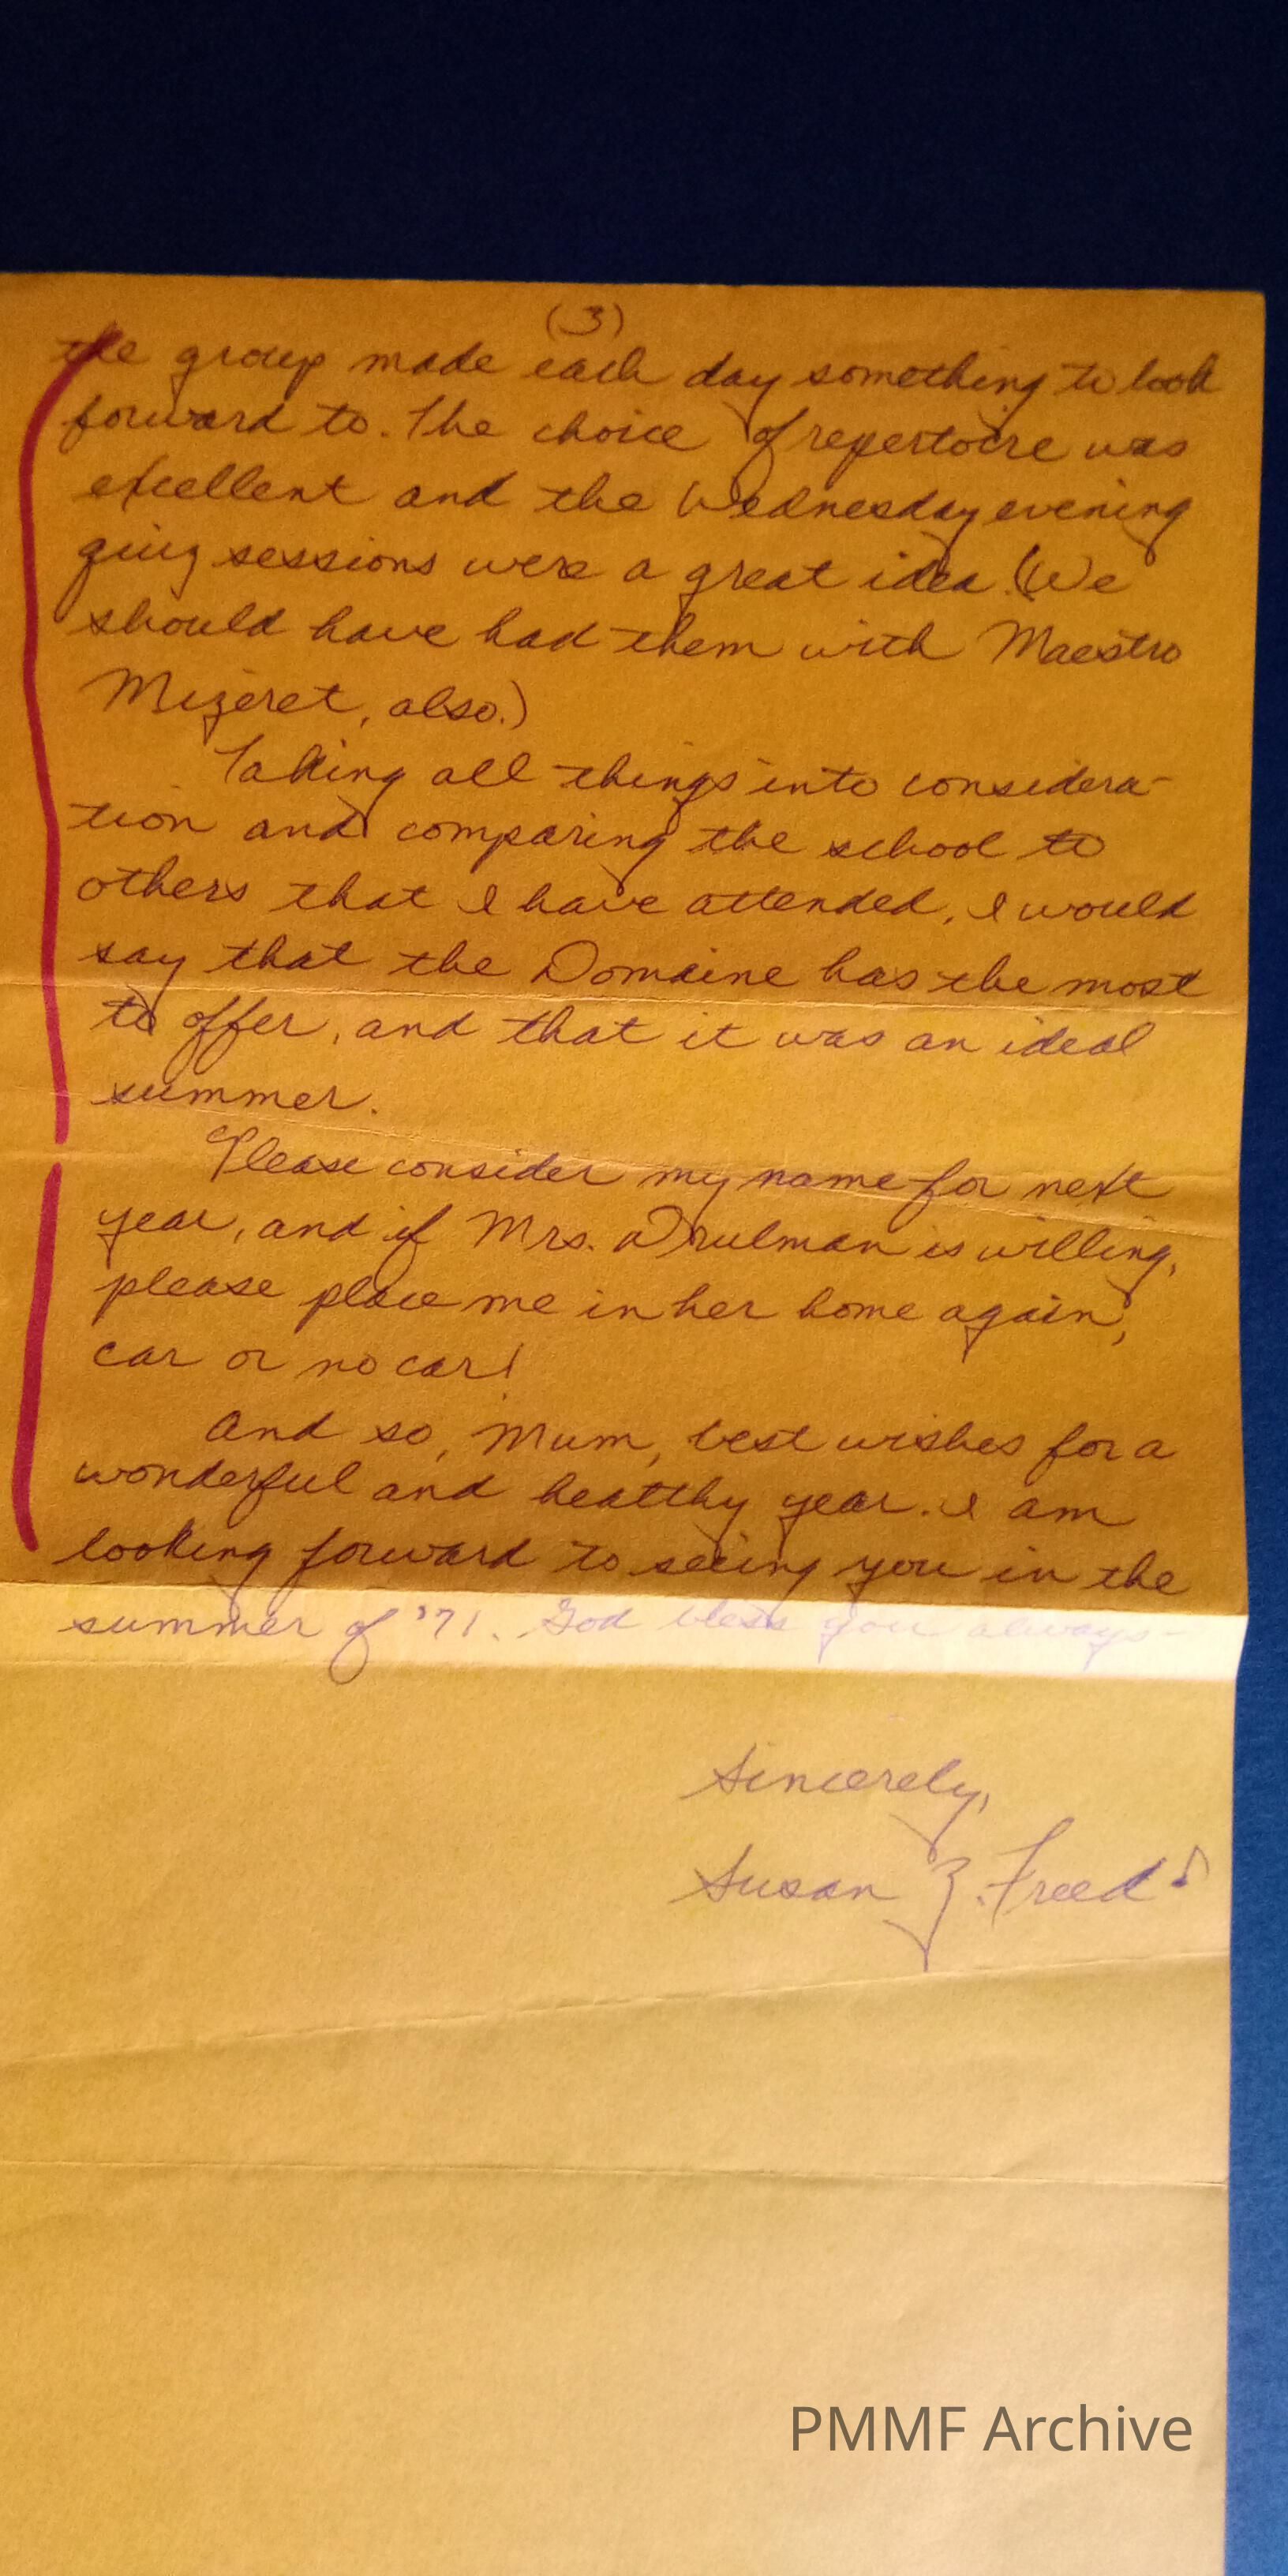 (3)
the group made each day something to look
forward to. The choice of repertoire was
excellent and the Wednesday evening
quiz sessions were a great idea. (We
should have had them with Maestro
Mizeret, also.)
Taking all things into considera-
tion and comparing the school to
others that I have attended, I would
say that the Domaine has the most
to offer, and that it was an ideal
summer.
Please consider my name for next
year, and if Mrs. is willing,
please place me in her home again,
car or no car!
And so, Mum, best wishes for a
wonderful and healthy year. I am
looking forward to seeing you in the
summer of '71. God bless you always-
Sincerely,
Susan Z. Freed ♪
PMMF Archive